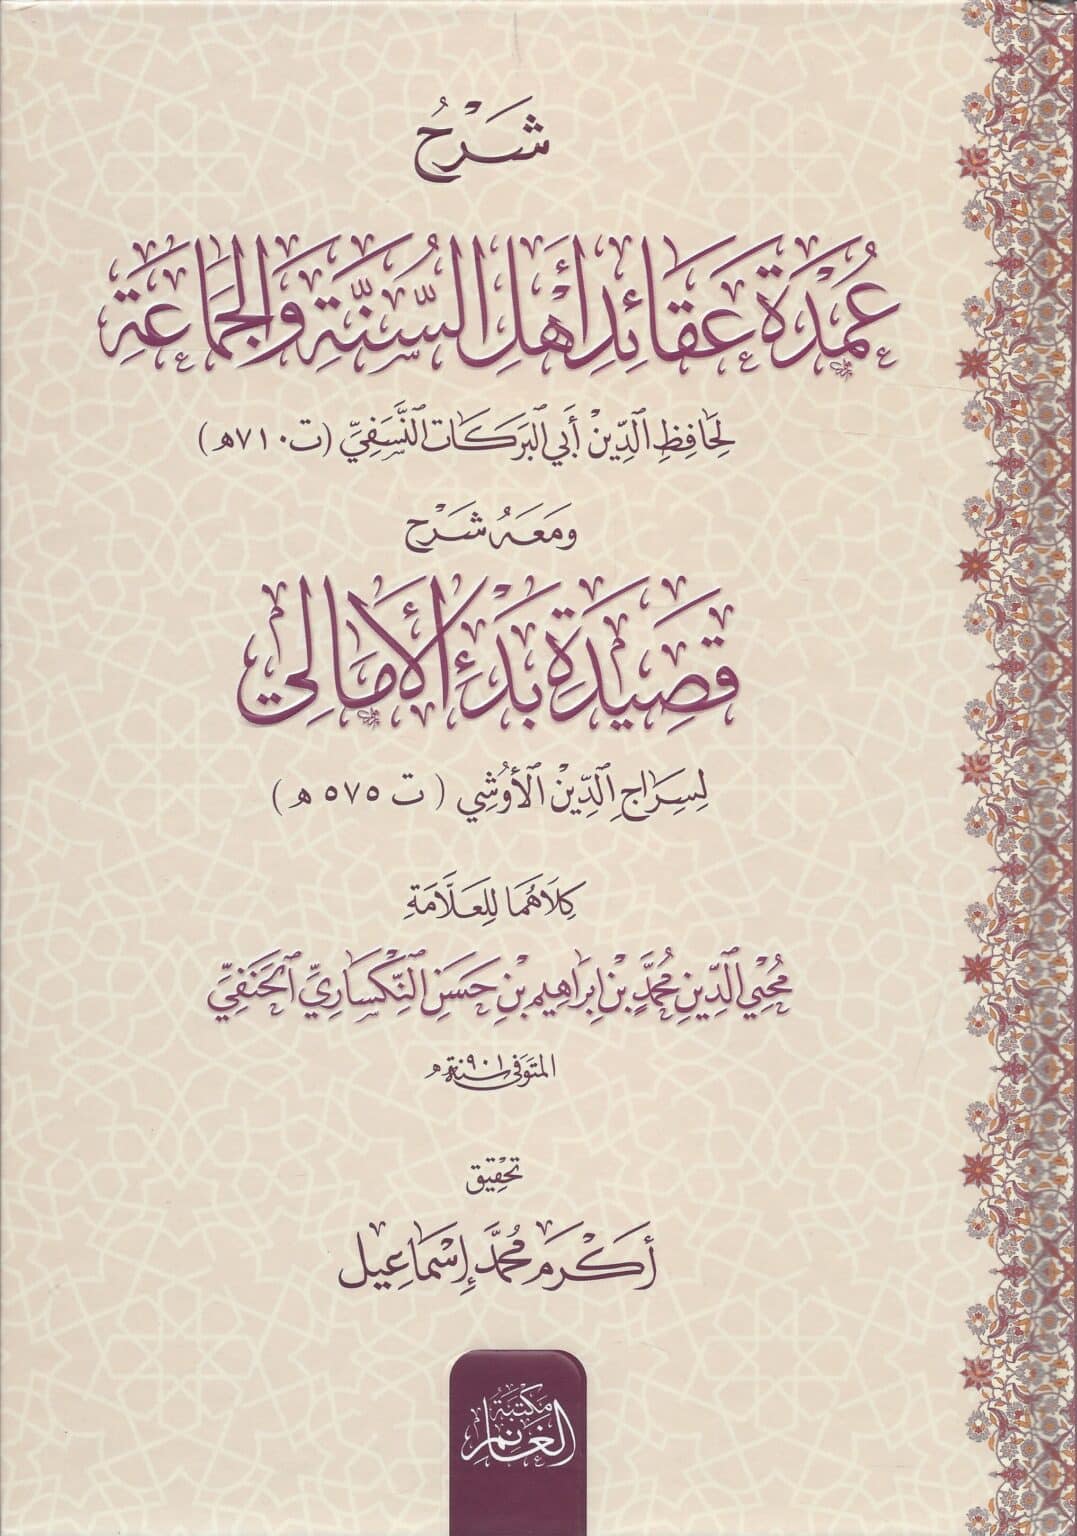 شَرْحُ
عُمْدَةِ عَقَائِدِ أَهْلِ السُّنَّةِ وَالْجَمَاعَةِ
لِحَافِظِ الدِّيْنِ أَبِي الْبَرَكَاتِ النَّسَفِيِّ (ت ٧١٠هـ)
وَمَعَهُ شَرْحُ
قَصِيْدَةِ بَدْءِ الْأَمَالِي
لِسِرَاجِ الدِّيْنِ الْأُوْشِي (ت ٥٧٥ هـ)
كِلَاهُمَا لِلْعَلَّامَةِ
مُحْيِي الدِّيْنِ مُحَمَّدِ بْنِ إِبْرَاهِيْمِ بْنِ حَسَنِ النِّكْسَارِيِّ الْحَنَفِيِّ
المتوفى سنة ٩٠١هـ
تحقيق
أَكْرَم مُحَمَّد إِسْمَاعِيل
مكتبة
الغانم